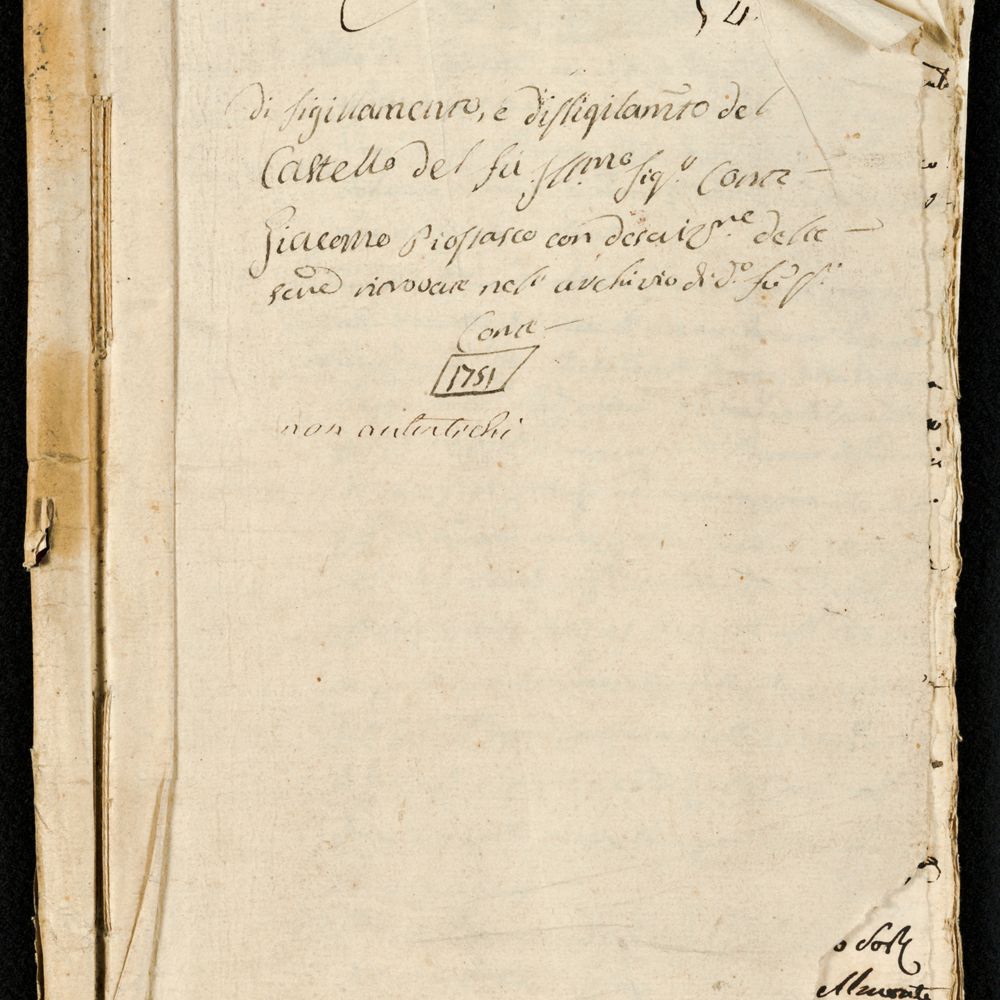 4.
di sigillamento, e dissigilam̃to del
Castello del fù Ill.mo Sig.r Conte
Giacomo Piossasco con descriz.ne delle
ritrovate nell' archivio di d.o fù S.r
Conte
1751
non autentichi